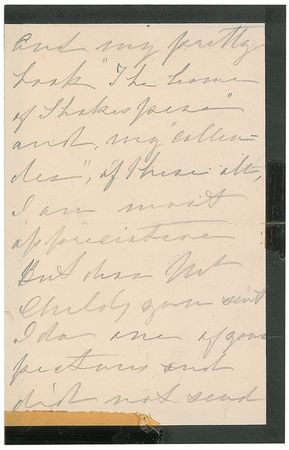 and my pretty
book "The home
of Shakespeare"
and, my "callen-
der", of these all,
I am most
appreciative
But dear Mrt
Childs you sent
I do one of your
pictures and
did not send